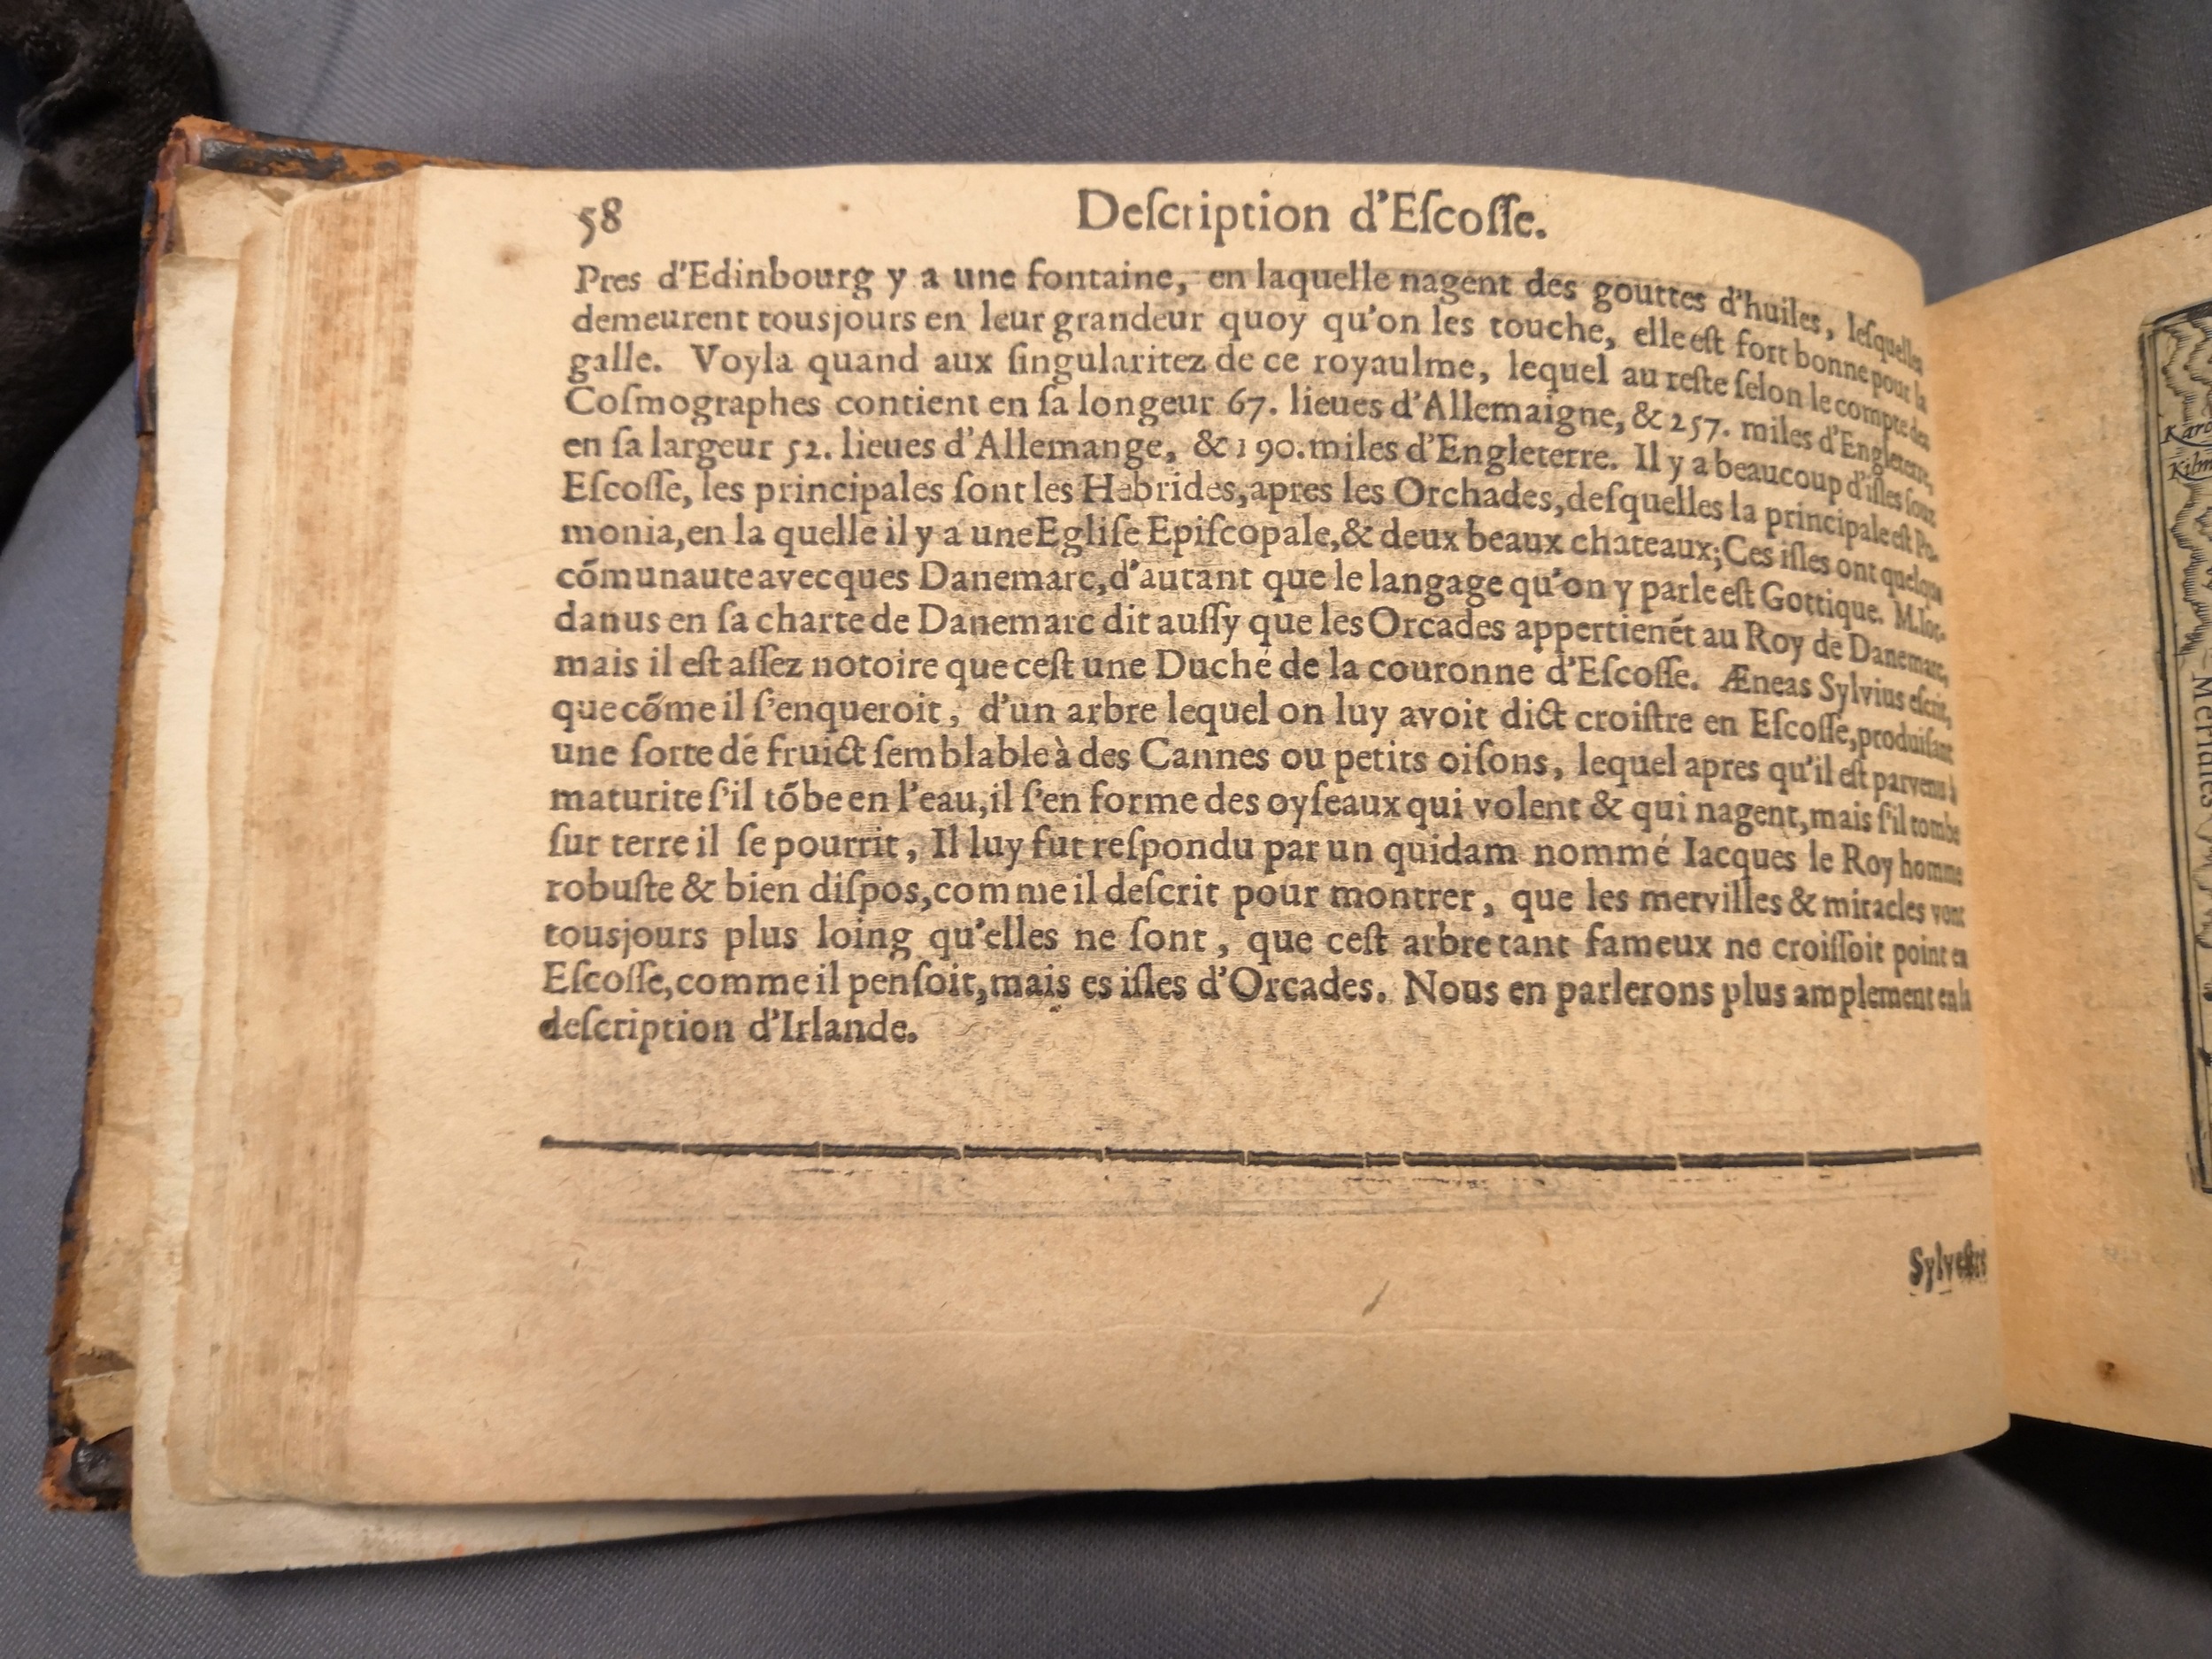 58
Deſcription d'Eſcoſſe.
Pres d'Edinbourg y a une fontaine, en laquelle nagent des gouttes d'huiles, leſquelles
demeurent tousjours en leur grandeur quoy qu'on les touche, elle eſt fort bonne pour la
galle. Voyla quand aux ſingularitez de ce royaulme, lequel au reſte ſelon le compte des
Coſmographes contient en ſa longeur 67. lieues d'Allemaigne, & 257. miles d'Engleterre,
en ſa largeur 52. lieues d'Allemange, & 190. miles d'Engleterre. Il y a beaucoup d'iſles ſouz
Eſcoſſe, les principales ſont les Hebrides, apres les Orchades, deſquelles la principale eſt Po-
monia, en la quelle il y a une Egliſe Epiſcopale, & deux beaux chateaux; Ces iſles ont quelque
cómunaute avecques Danemarc, d'autant que le langage qu'on y parle eſt Gottique. M. Ior-
danus en ſa charte de Danemarc dit auſſy que les Orcades appertienét au Roy de Danemarc,
mais il eſt aſſez notoire que ceſt une Duché de la couronne d'Eſcoſſe. Æneas Sylvius eſcrit,
que cõme il ſ'enqueroit, d'un arbre lequel on luy avoit dict croiſtre en Eſcoſſe, produiſant
une ſorte dé fruict ſemblable à des Cannes ou petits oiſons, lequel apres qu'il eſt parvenu à
maturite ſ'il tõbe en l'eau, il ſ'en forme des oyſeaux qui volent & qui nagent, mais ſ'il tombe
ſur terre il ſe pourrit, Il luy fut reſpondu par un quidam nommé Iacques le Roy homme
robuſte & bien diſpos, comme il deſcrit pour montrer, que les mervilles & miracles vont
tousjours plus loing qu'elles ne ſont, que ceſt arbre tant fameux ne croiſſoit point en
Eſcoſſe, comme il penſoit, mais es iſles d'Orcades. Nous en parlerons plus amplement en la
deſcription d'Irlande.
Sylveſtre